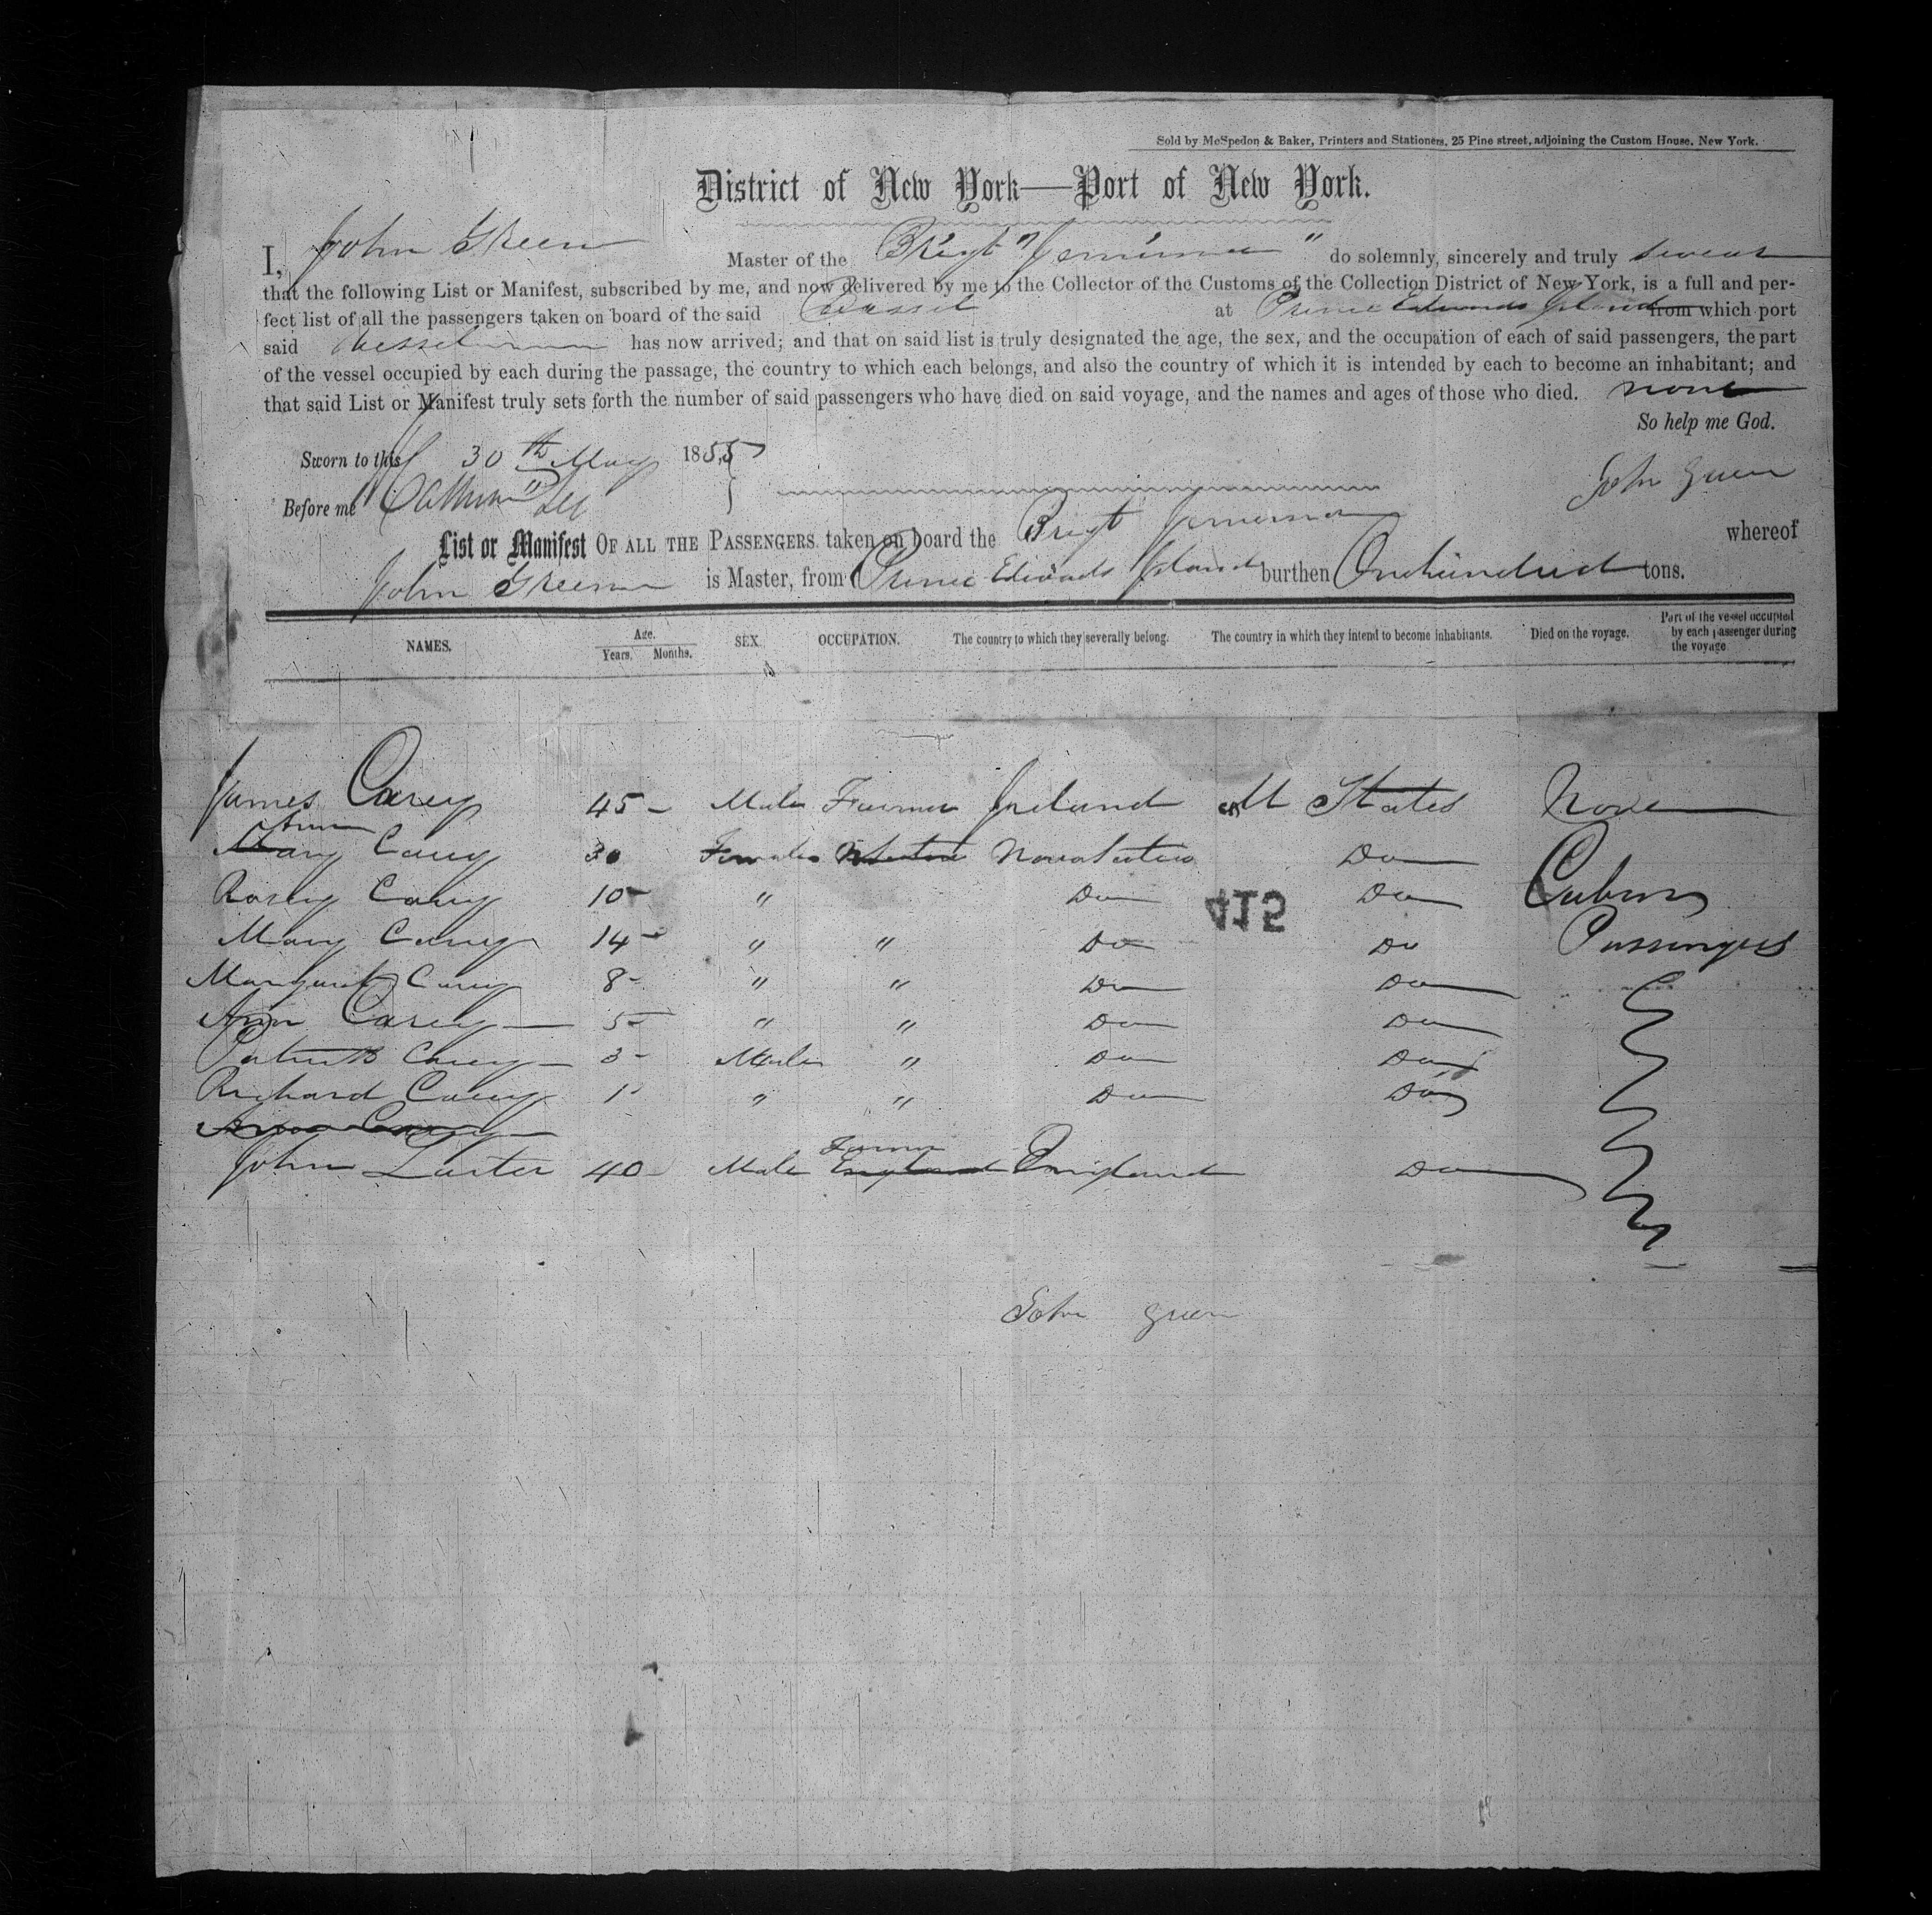 Sold by McSpedon & Baker, Printers and Stationers, 25 Pine street, adjoining the Custom House, New York.
District of New York—Port of New York.
I, John Green Master of the Brigt "Jemima" do solemnly, sincerely and truly swear
that the following List or Manifest, subscribed by me, and now delivered by me to the Collector of the Customs of the Collection District of New York, is a full and per-
fect list of all the passengers taken on board of the said Vessel at Prince Edwards Island from which port
said Vessel has now arrived; and that on said list is truly designated the age, the sex, and the occupation of each of said passengers, the part
of the vessel occupied by each during the passage, the country to which each belongs, and also the country of which it is intended by each to become an inhabitant; and
that said List or Manifest truly sets forth the number of said passengers who have died on said voyage, and the names and ages of those who died. none
So help me God.
Sworn to this 30th May 1855
John Green
Before me
List or Manifest OF ALL THE PASSENGERS taken on board the Brigt Jemima whereof
John Green is Master, from Prince Edwards Island burthen One hundred tons.
NAMES. Age. Years. Months. SEX. OCCUPATION. The country to which they severally belong. The country in which they intend to become inhabitants. Died on the voyage. Part of the vessel occupied by each passenger during the voyage
James Carey 45 Male Farmer Ireland States None
Ann
Mary Carey 30 Female Nova Scotia Do Cabin
Rosey Carey 10 " Do 415 Do Passengers
Mary Carey 14 " " Do Do
Margaret Carey 8 " " Do Do
Ann Carey 5 " " Do Do
Patrick Carey 3 Male " Do Do
Richard Carey 1 " " Do Do
Ann Carey
Farmer
John Laster 40 Male England England Do
John Green